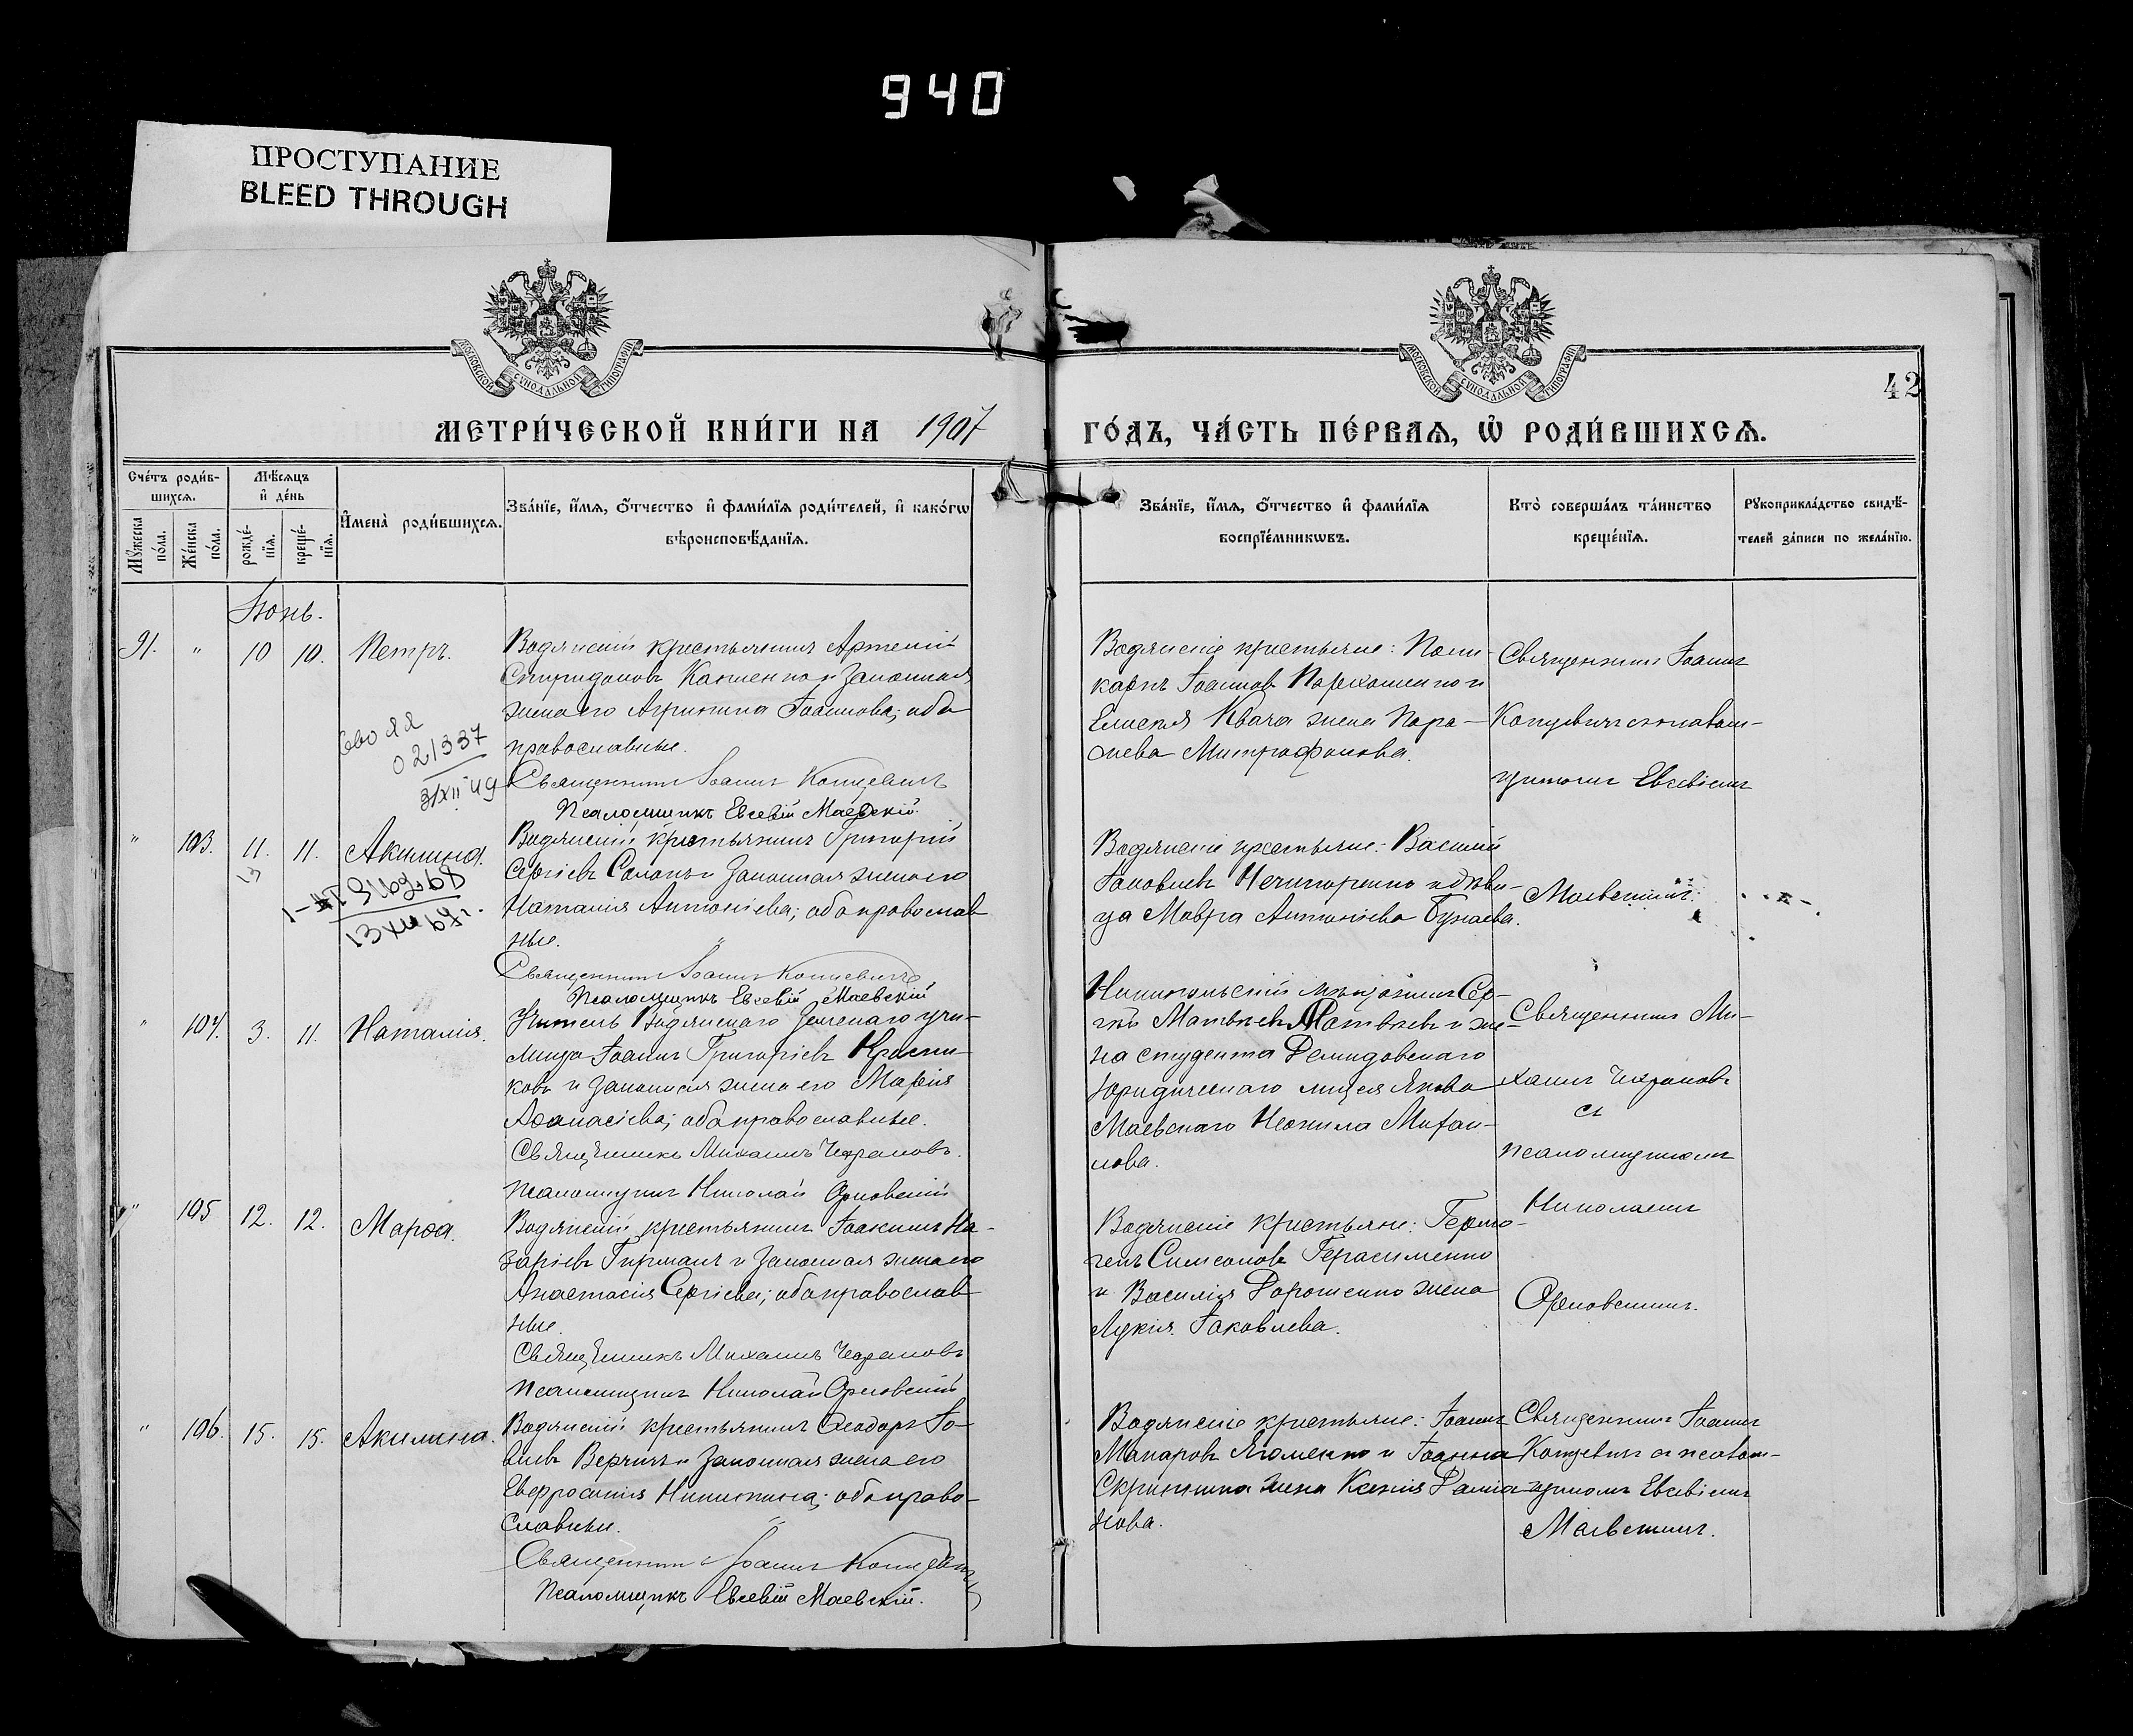 940
ПРОСТУПАНИЕ
BLEED THROUGH
МОСКОВСКОЙ СѴНОДАЛЬНОЙ ТИПОГРАФІИ
МОСКОВСКОЙ СѴНОДАЛЬНОЙ ТИПОГРАФІИ
42
МЕТРИ́ЧЕСКОЙ КНИ́ГИ НА 1907
ГО́ДЪ, ЧА́СТЬ ПЕ́РВАѦ, Ѡ҆ РОДИ́ВШИХСѦ.
Сче́тъ роди́в-
шихсѧ.
Мꙋ́жеска по́ла.
Же́нска по́ла.
Мѣ́сѧцъ
и҆ де́нь
рожде́-
нїѧ.
креще́-
нїѧ.
И҆мена̀ роди́вшихсѧ.
Зва́нїе, и҆́мѧ, ѻ҆́тчество и҆ фами́лїѧ роди́телей, и҆ како́гѡ
вѣроисповѣ́данїѧ.
Зва́нїе, и҆́мѧ, ѻ҆́тчество и҆ фами́лїѧ
воспрїе́мникѡвъ.
Кто̀ соверша́лъ та́инство
креще́нїѧ.
Рꙋкоприкла́дство свидѣ́-
телей за́писи по жела́нїю.
Іюнь.
91. " 10 10. Петръ.
Водянскій крестьянинъ Артемій
Спиридоновъ и законная
жена его Агрипина Іоаннова; оба
православные.
Священникъ Іоаннъ Копцевичъ
Псаломщикъ Евсевій Маевскій.
021337
3/XII 49
Водянскіе крестьяне: Поли-
карпъ Іоанновъ Пархоменко и
Елисея Квача жена Пара-
скева Митрофанова.
Священникъ Іоаннъ
Копцевичъ с псалом-
щикомъ Евсевіемъ
Маевскимъ.
" 103. 11. 11. Акилина.
13
Водянскій крестьянинъ Григорій
Сергіевъ и законная жена его
Наталія Антоніева; оба православ
ные.
Священникъ Іоаннъ Копцевичъ
Псаломщикъ Евсевій Маевскій
Водянскіе крестьяне: Василій
Іаковлевъ Нечипоренко и дѣви-
ца Мавра Антоніева
" 104. 3. 11. Наталія.
Учитель Водянскаго земскаго учи-
лища Іоаннъ Григоріевъ
и законная жена его Марія
Аѳанасіева; оба православные.
Священникъ Михаилъ
Псаломщикъ Николай Орловскій
Никопольскій мѣщанинъ Сер-
гѣй Матвѣевъ Матвѣевъ и же-
на студента Демидовскаго
Юридическаго лицея Якова
Маевскаго Неонила Михаи-
лова.
Священникъ Ми-
хаилъ
съ
псаломщикомъ
Николаемъ
Орловскимъ.
" 105 12. 12. Марѳа.
Водянскій крестьянинъ Іоакимъ На-
заріевъ и законная жена его
Анастасія Сергіева; оба православ
ные.
Священникъ Михаилъ
Псаломщикъ Николай Орловскій
Водянскіе крестьяне: Гермо-
генъ Симеоновъ Герасименко
и Василія Дорошенко жена
Лукія Іаковлева.
" 106. 15. 15. Акилина.
Водянскій крестьянинъ Ѳеодоръ Іо-
влевъ и законная жена его
Евфросинія Никитина; оба право-
славные.
Священникъ Іоаннъ Копцевичъ
Псаломщикъ Евсевій Маевскій.
Водянскіе крестьяне: Іоаннъ
Макаровъ и Іоанна
жена Ксенія Даміа-
нова.
Священникъ Іоаннъ
Копцевичъ съ псалом-
щикомъ Евсевіемъ
Маевскимъ.